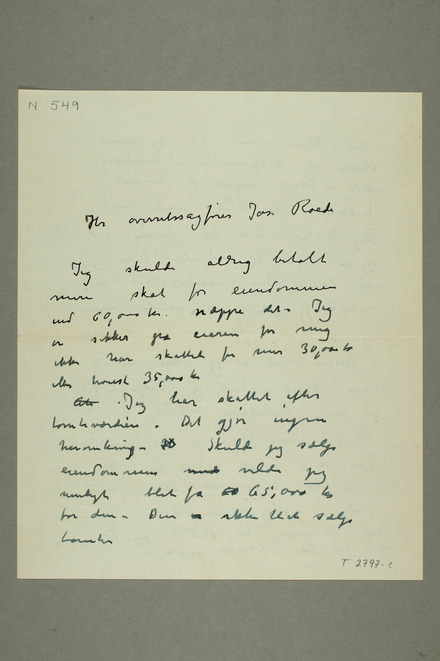 N 549
Hr overretssagfører Johs Roede
Jeg skulde aldrig betalt
mere skat for eiendommen
end 60,000 kr. næppe det. Jeg
er sikker på eieren før mig
ikke har skattet for mer 30,000 kr
eller høiest 35,000 kr
Jeg har skattet efter
tomteværdien. Det gjør ingen
Skulde jeg sælge
eiendommen vilde jeg
muligt blot få 65,000 kr
for den. Den ikke sælge
tomter
T 2797-c